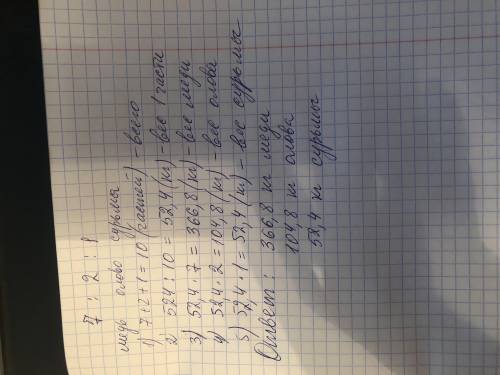 7 : 2 : 1
медь олово сурьмы
1) 7+2+1=10 (частей) - всего
2) 524 : 10 = 52,4 (кг) - вес 1 части
3) 52,4 · 7 = 366,8 (кг) - вес меди
4) 52,4 · 2 = 104,8 (кг) - вес олова
5) 52,4 · 1 = 52,4 (кг) - вес сурьмы
Ответ: 366,8 кг меди
104,8 кг олова
52,4 кг сурьмы